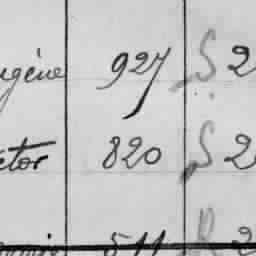 ugène 927 S 2
ctor 820 S 2
511 2